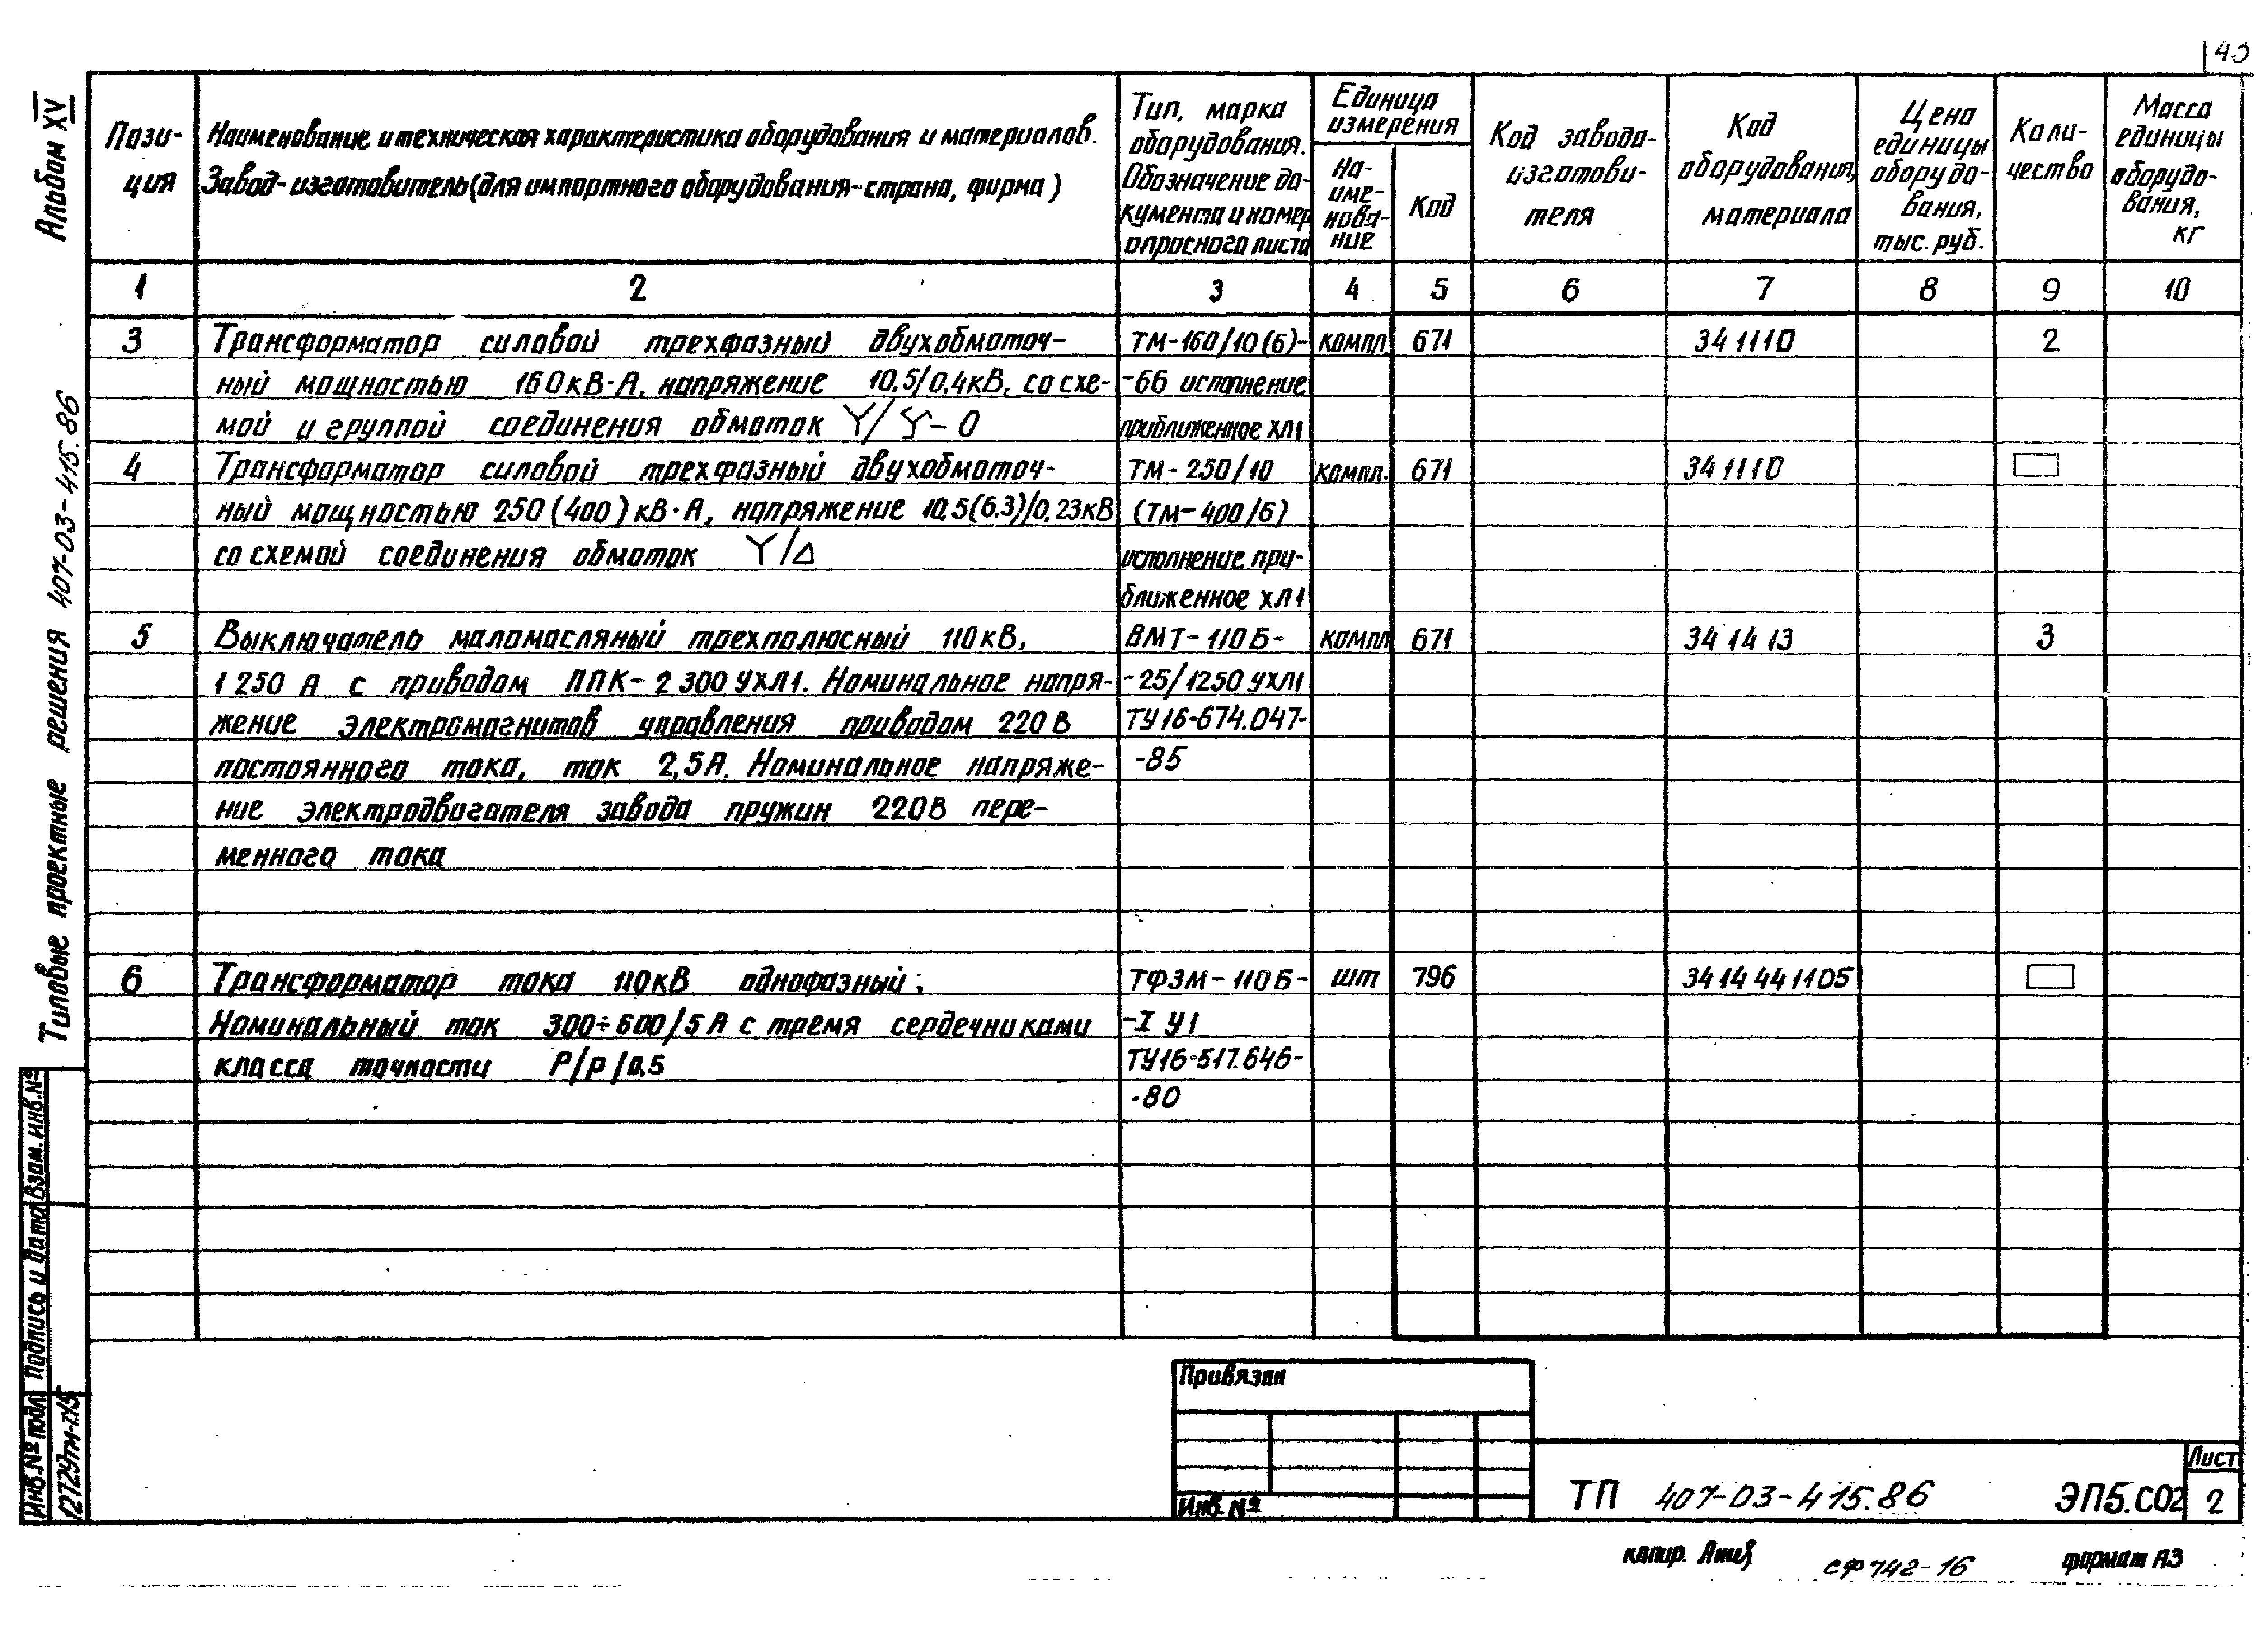 43
Альбом XV
Типовые проектные решения 407-03-415.86
Пози-
ция
Наименование и техническая характеристика оборудования и материалов.
Завод-изготовитель (для импортного оборудования-страна, фирма)
Тип, марка
оборудования.
Обозначение до-
кумента и номер
опросного листа
Единица
измерения
На-
име-
нова-
ние
Код
Код завода-
изготови-
теля
Код
оборудования,
материала
Цена
единицы
оборудо-
вания,
тыс. руб.
Коли-
чество
Масса
единицы
оборудо-
вания,
кг
1 2 3 4 5 6 7 8 9 10
3 Трансформатор силовой трехфазный двухобмоточ- ТМ-160/10(6)- компл. 671 34 1110 2
ный мощностью 160кВ·А, напряжение 10,5/0,4кВ, со схе- -66 исполнение
мой и группой соединения обмоток Y/Y-0 приближенное ХЛ1
4 Трансформатор силовой трехфазный двухобмоточ- ТМ-250/10 компл. 671 34 1110
ный мощностью 250(400)кВ·А, напряжение 10,5(6.3)/0,23кВ (ТМ-400/6)
со схемой соединения обмоток Y/Δ исполнение при-
ближенное ХЛ1
5 Выключатель маломасляный трехполюсный 110кВ, ВМТ-110Б- компл 671 34 14 13 3
1250 А с приводом ППК-2300 УХЛ1. Номинальное напря- -25/1250 УХЛ1
жение электромагнитов управления приводом 220В ТУ16-674.047-
постоянного тока, ток 2,5А. Номинальное напряже- -85
ние электродвигателя завода пружин 220В пере-
менного тока
6 Трансформатор тока 110кВ однофазный; ТФЗМ-110Б- шт 796 34 14 44 1105
Номинальный ток 300÷600/5А с тремя сердечниками -I У1
класса точности Р/Р/0,5 ТУ16-517.646-
-80
Взам. инв.№
Подпись и дата
Инв.№ подл.
12729тм-т15
Привязан
Инв.№
ТП 407-03-415.86 ЭП5.СО2
Лист
2
копир. СФ742-16 формат А3